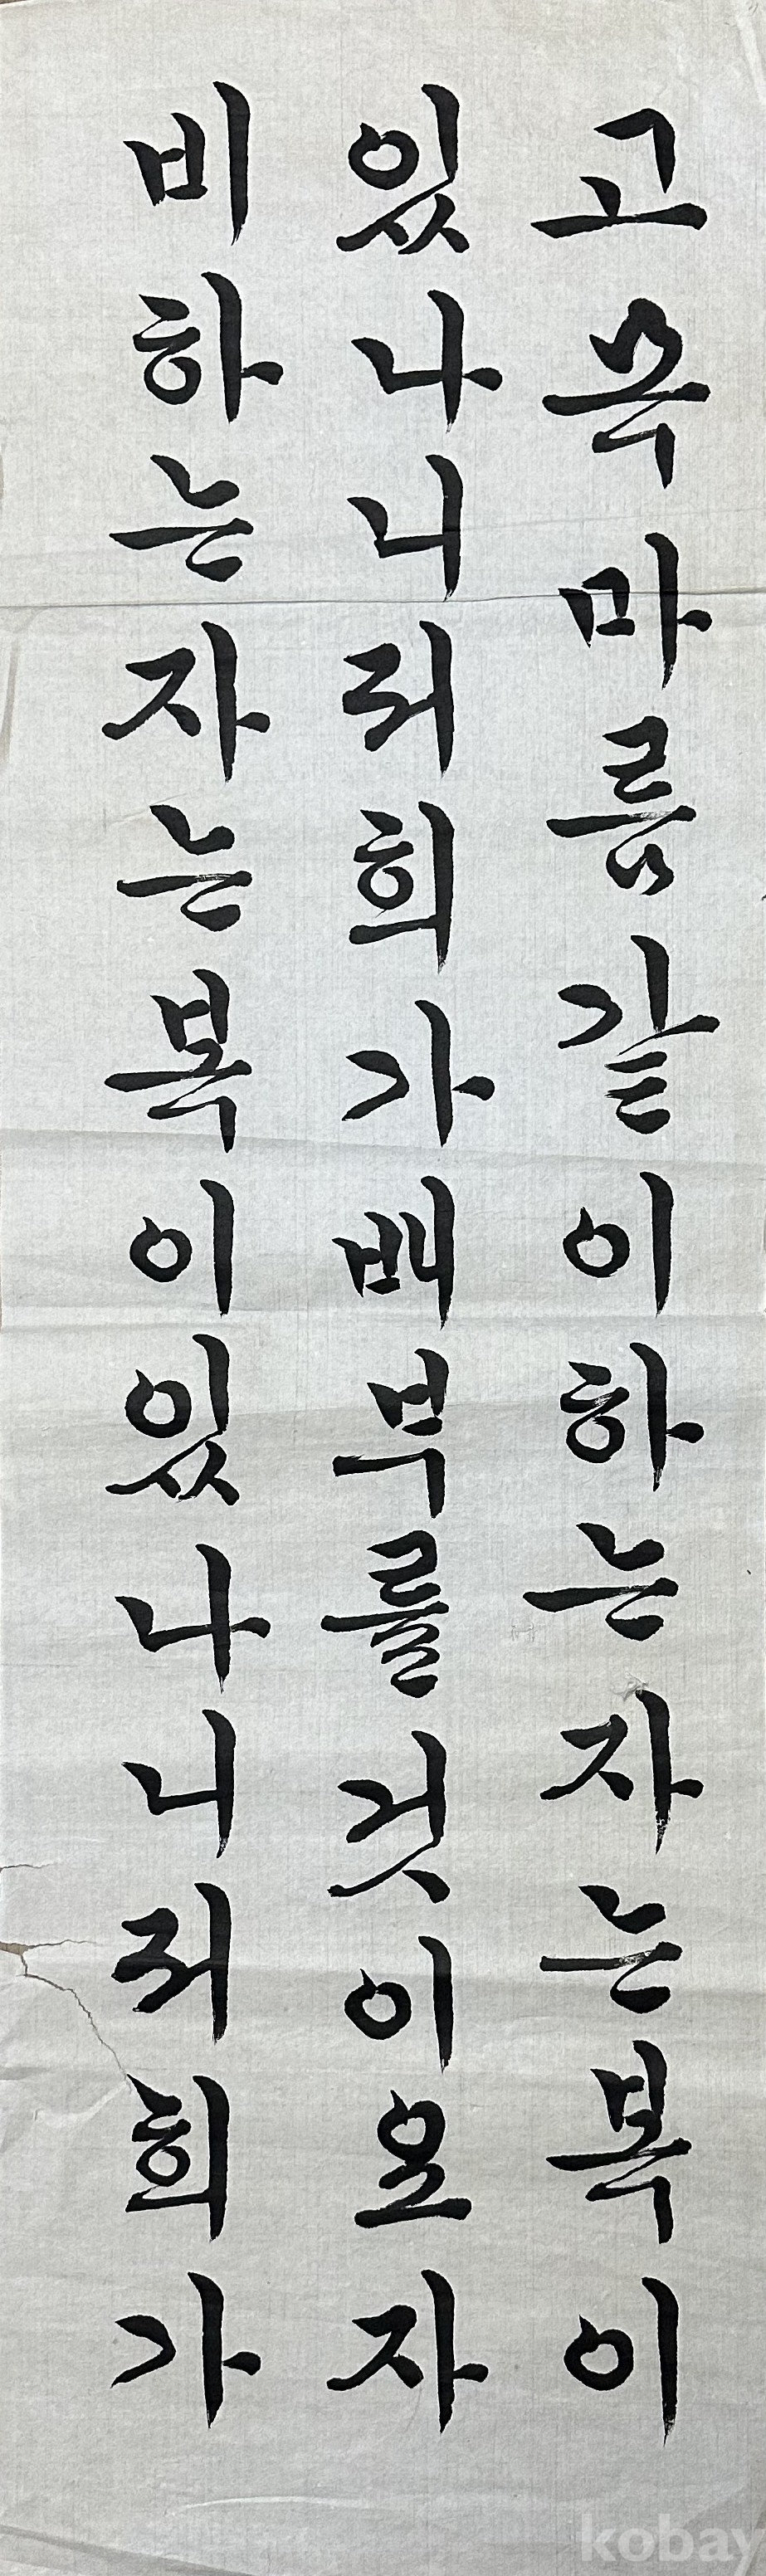 고목마름같이하는자는복이
있나니저희가배부를것이오자
비하는자는복이있나니저희가
kobay